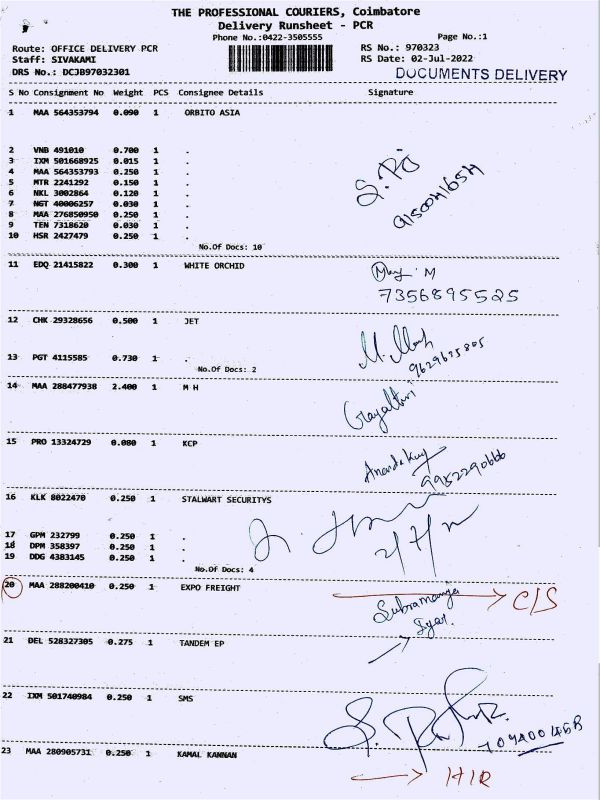 THE PROFESSIONAL COURIERS, Coimbatore
Delivery Runsheet - PCR
Phone No.:0422-3505555 Page No.:1
Route: OFFICE DELIVERY PCR RS No.: 970323
Staff: SIVAKAMI RS Date: 02-Jul-2022
DRS No.: DCJB97032301 DOCUMENTS DELIVERY
S No Consignment No Weight PCS Consignee Details Signature
1 MAA 564353794 0.090 1 ORBITO ASIA
2 VNB 491010 0.700 1 .
3 IXM 501668925 0.015 1 .
4 MAA 564353793 0.250 1 .
5 MTR 2241292 0.150 1 .
6 NKL 3002864 0.120 1 .
7 NGT 40006257 0.030 1 .
8 MAA 276850950 0.250 1 .
9 TEN 7318620 0.030 1 .
10 HSR 2427479 0.250 1 .
No.Of Docs: 10
11 EDQ 21415822 0.300 1 WHITE ORCHID
7356895525
12 CHK 29328656 0.500 1 JET
13 PGT 4115585 0.730 1 .
No.Of Docs: 2
14 MAA 288477938 2.400 1 M H
Gayathri
15 PRO 13324729 0.080 1 KCP
9952290666
16 KLK 8022470 0.250 1 STALWART SECURITYS
17 GPM 232799 0.250 1 .
18 DPM 358397 0.250 1 .
19 DDG 4383145 0.250 1 .
No.Of Docs: 4
20 MAA 288200410 0.250 1 EXPO FREIGHT C/S
21 DEL 528327305 0.275 1 TANDEM EP
22 IXM 501740984 0.250 1 SMS
23 MAA 280905731 0.250 1 KAMAL KANNAN